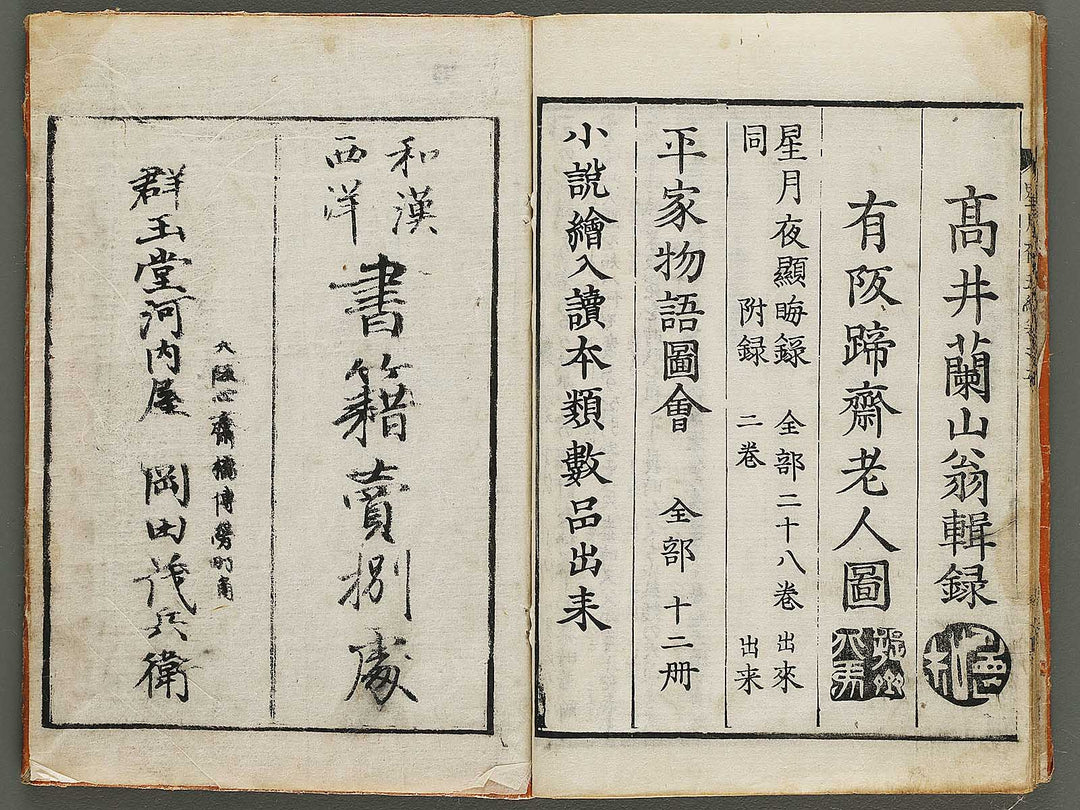 髙井蘭山翁輯録
有阪蹄齋老人圖
星月夜顯晦録 全部二十八巻 出來
同 附録 二巻 出来
平家物語圖會 全部 十二册
小説繪入讀本類數品出来
和漢
西洋
書籍賣捌處
大阪心齋橋博勞町角
群玉堂河内屋 岡田茂兵衛